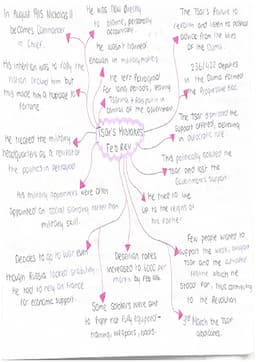 In August 1915 Nicholas II
becomes Commander
in Chief.
His intention was to rally the
nation around him but
this made him a hostage to
fortune
He was now directly
to blame, personally
accountable.
He wasn't trained
enough in military matters
He left Petrograd
for long periods, leaving
Tsarina & Rasputin in
control of the Government
The Tsar's Failure to
reform and listen to political
advice from the likes
of the Duma.
236/422 deputies
in the Duma formed
the Progressive Bloc
The Tsar dismissed the
support offered, believing
in autocratic rule
This politically isolated the
tsar and lost the
Government's support.
Tsar's Mistakes
Feb Rev
He treated the military
headquarters as a retreat for
the politics in Petrograd
His military appointees were often
appointed on social standing rather than
military skill.
He tried to live
up to the reigns of
his father
Decides to go to war even
though Russia lacked stability.
He had to rely on France
for economic support.
Some soldiers were sent
to fight not fully equipped -
training, weapons, boots.
Desertion rates
increased to 6000 per
month by Feb 1916.
Few people wanted to
support the weak, arrogant
tsar and the
regime which he
stood for, thus contributing
to the Revolution
3rd March the Tsar
abdicates.